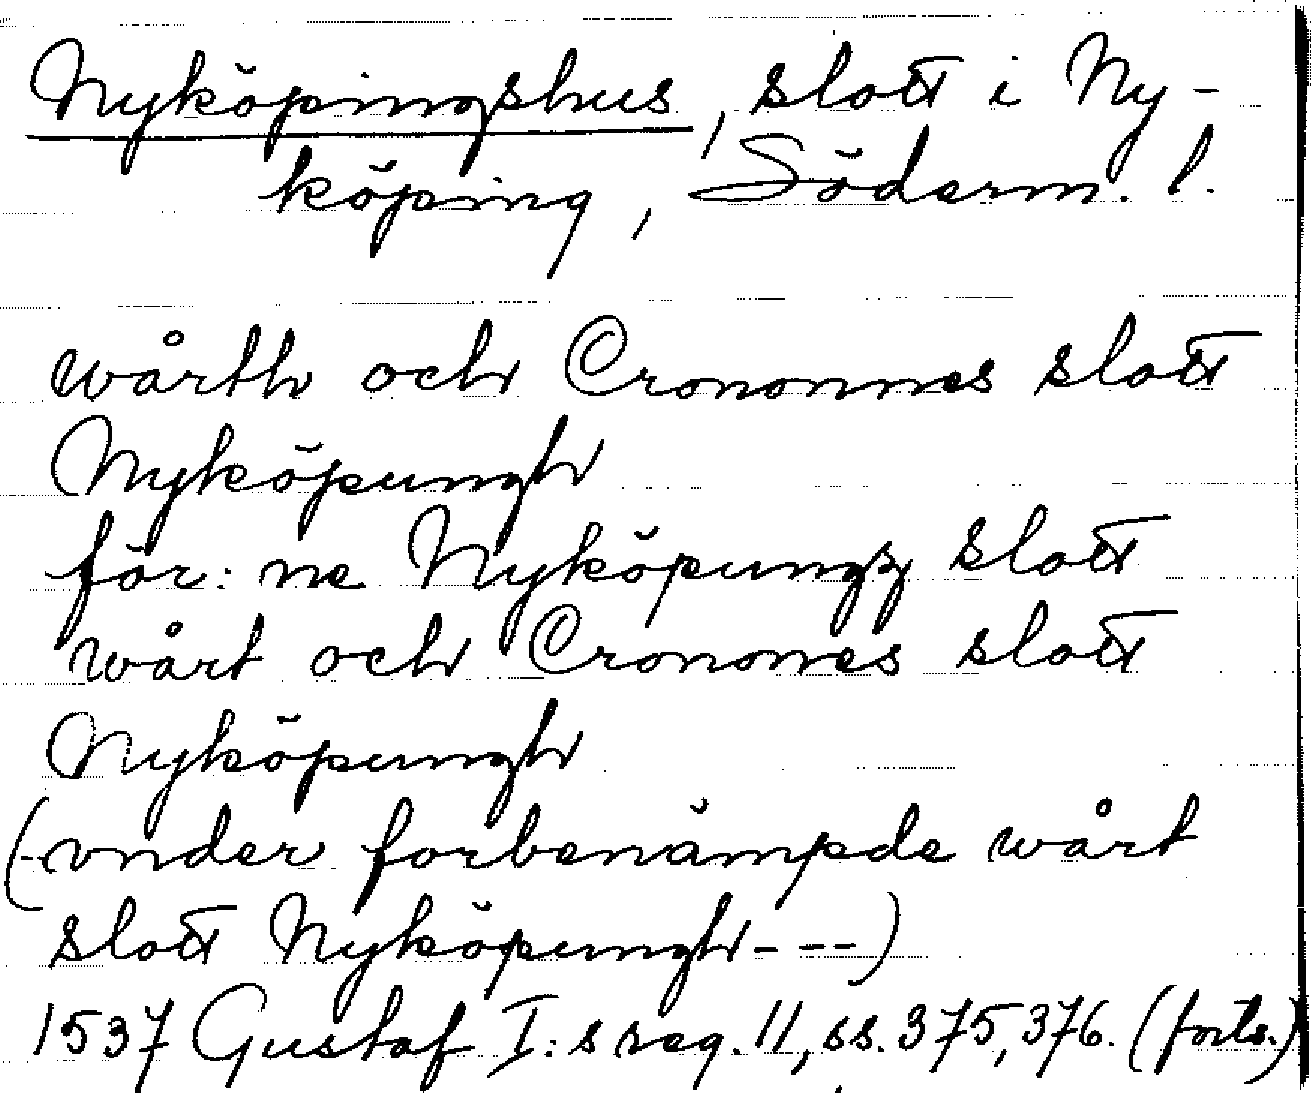 Nyköpingshus, slott i Ny-
köping, Söderm. l.
wårth och Crononnes slott
Nyköpungh
för: ne Nyköpungz slott
wårt och Cronones slott
Nyköpungh
(vnder forbenämpde wårt
slott Nyköpungh---)
1537 Gustaf I:s reg. 11, ss. 375, 376. (forts.)